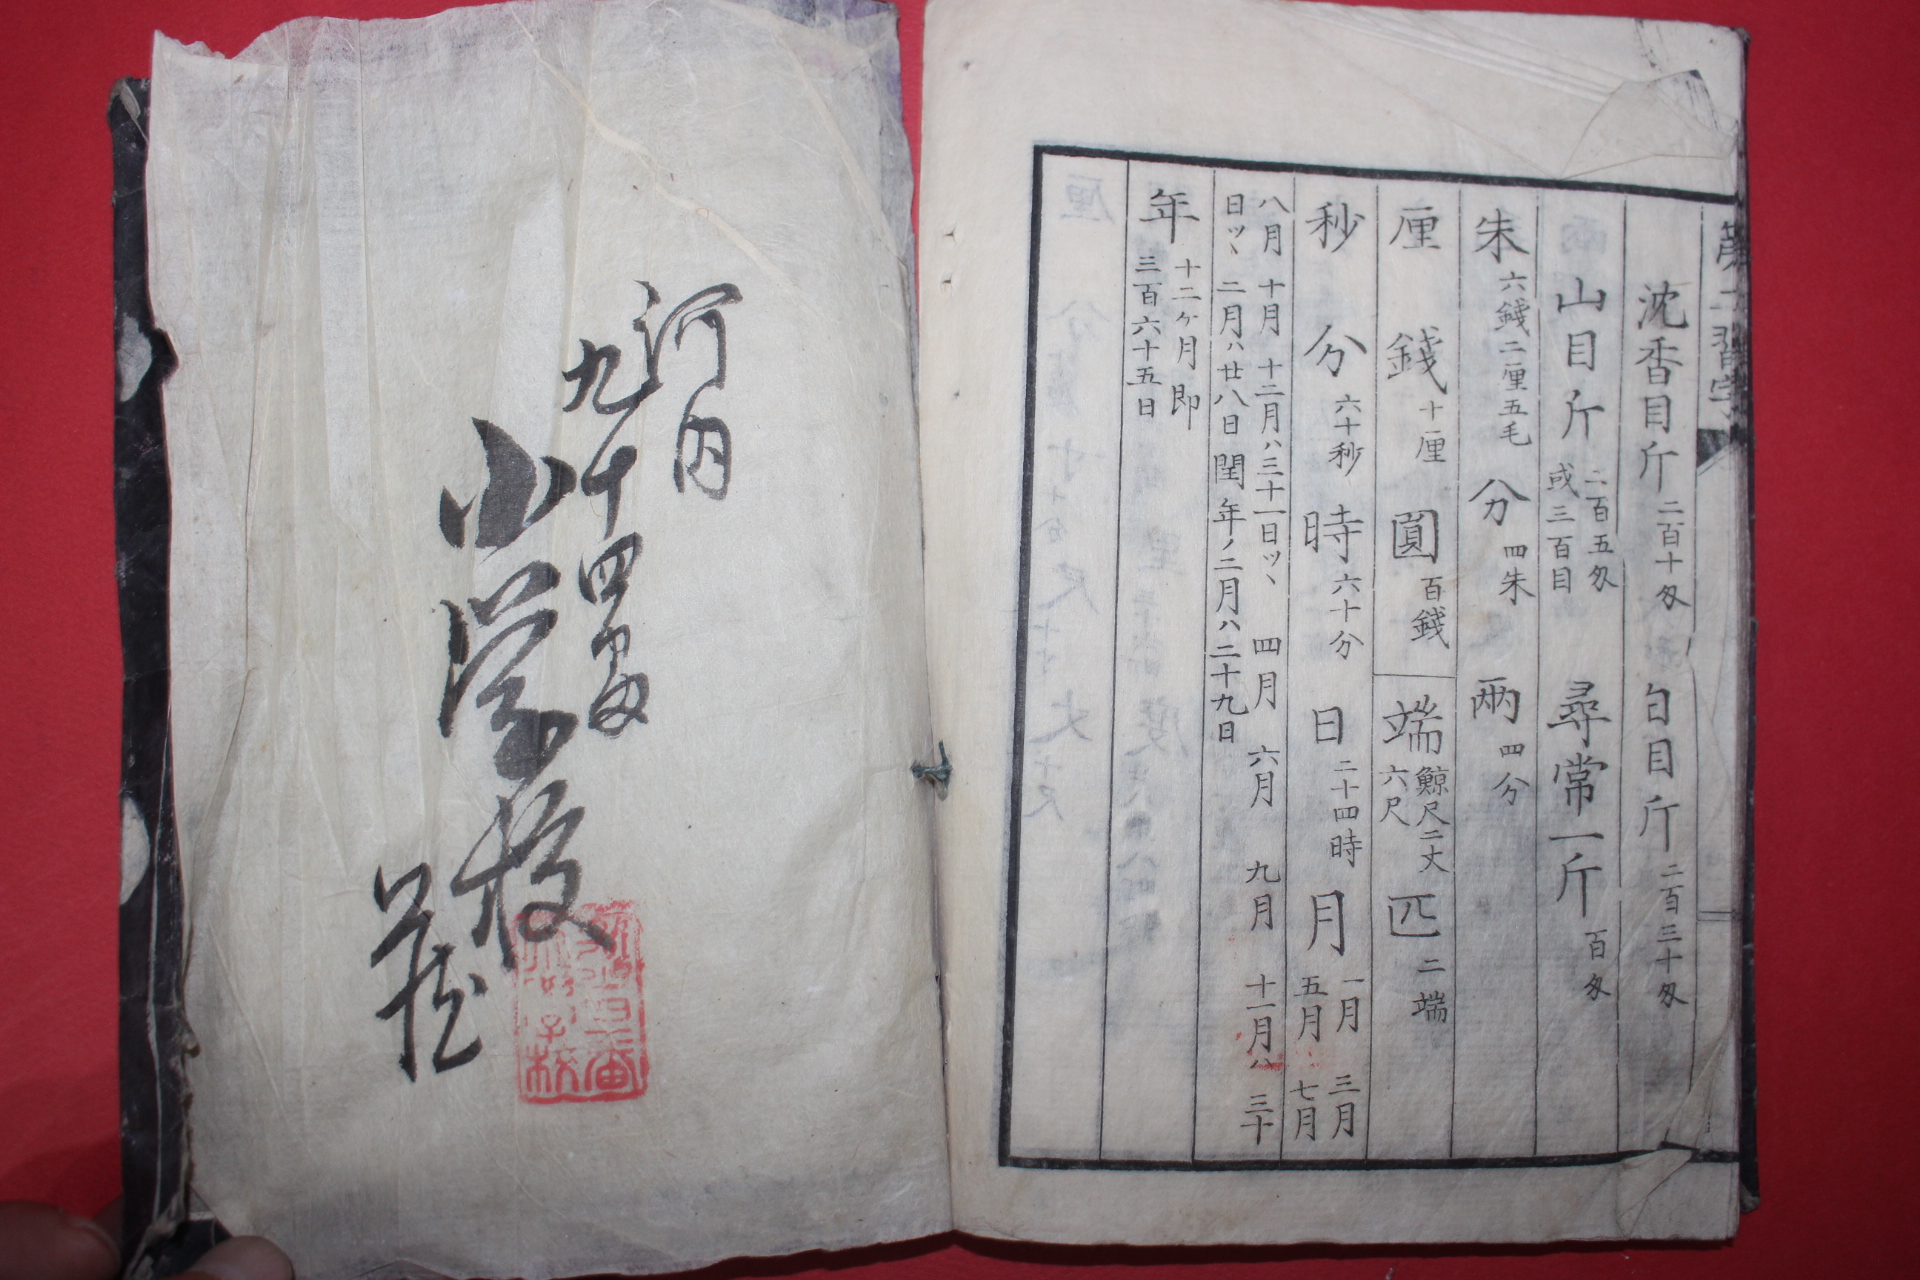 沈香目斤 二百十匁 白目斤 二百三十匁
山目斤 二百五匁 或三百目 尋常一斤 百匁
朱 六錢二厘五毛 分 四朱 兩 四分
厘 錢 十厘 圓 百錢
端 鯨尺二丈六尺 匹 二端
秒 分 六十秒 時 六十分 日 二十四時 月 一月 三月 五月 七月
八月 十月 十二月ハ三十一日ツヽ 四月 六月 九月 十一月ハ三十
日ツヽ 二月ハ廿八日閏年ノ二月ハ二十九日
年 十二ヶ月即三百六十五日
河内
九十四番
小学校
蔵